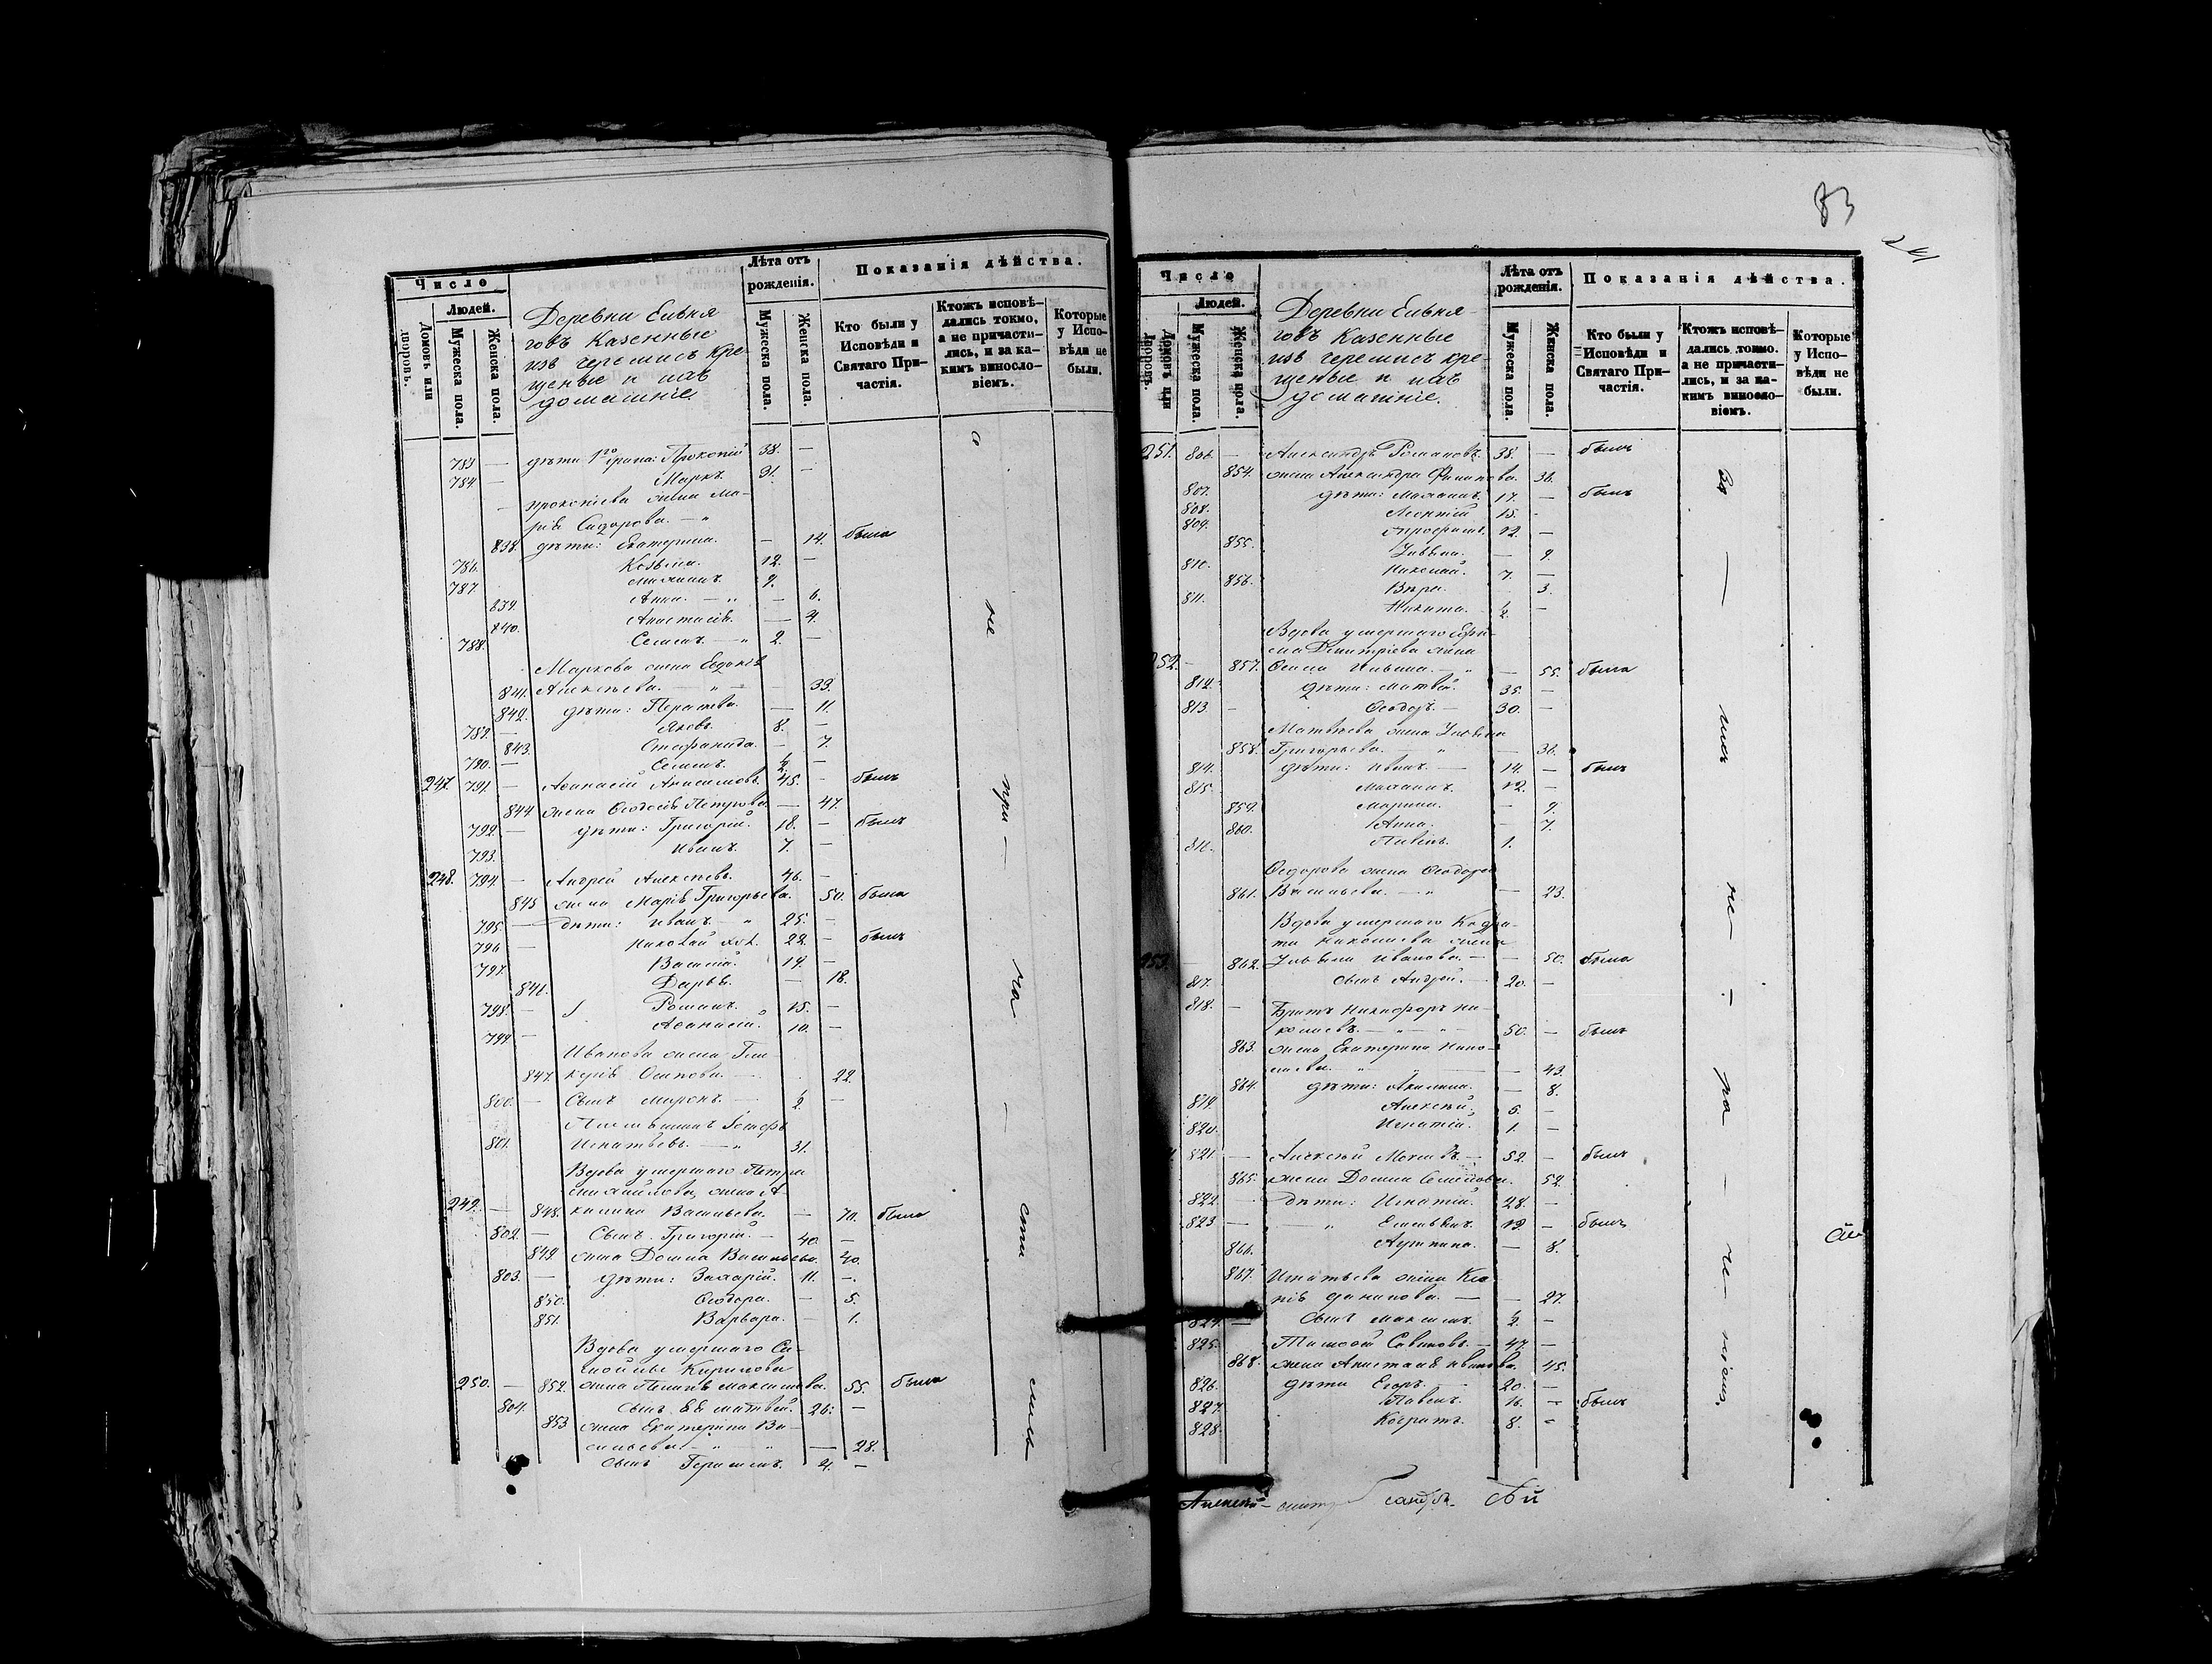 Число
Людей.
Домовъ или дворовъ.
Мужеска пола.
Женска пола.
Деревни
Казенные
изъ черемисъ кре-
щеные и ихъ
домашніе.
Лѣта отъ рожденія.
Мужеска пола.
Женска пола.
Показанія дѣйства.
Кто были у Исповѣди и Святаго Причастія.
Ктожъ исповѣ-
дались токмо,
а не причасти-
лись, и за ка-
кимъ винословіемъ.
Которые у Испо-
вѣди не были.
783 — дѣти 1го брака: Прокопій 38. —
784. — Маркъ. 31. —
Прокопіева жена Ма-
рія Сидорова. — „
838. дѣти: Екатерина. — 14. была
786. Козьма. 12. —
787. Михаилъ. 9.
839. Анна. — „ — 6.
840. Анастасія. — 4.
788. Семенъ. — „ 2. —
Маркова жена Евдокія
841. Алексѣева. — „ — 33.
842. дѣти: Параскева. — 11.
789. — Яковъ. 8. —
843. Стефанида. — 7.
790. — Семенъ. ½. —
247. 791. — Аѳанасій Анисимовъ. 45. — былъ
844. жена Ѳеодосія Петрова. — 47.
792. — дѣти: Григорій. 18. — былъ
793. Иванъ. 7. —
248. 794. — Андрей Алексѣевъ. 46. —
845 жена Марія Григорьева. 50. была
795. — дѣти: Иванъ. — „ 25. —
796 — Николай хол. 22. — былъ
797. Василій. 14. —
846. Дарья. — 18.
798. — Романъ. 15. —
799 — Аѳанасій. 10. —
Иванова жена Гли-
847. керія Осипова. — 22.
800. — Сынъ Миронъ. — ½. —
801. Игнатьевъ. — „ 31.
Вдова умершаго Петра
Михайлова, жена А-
249. — 848. килина Васильева. — 70. была
802. — Сынъ Григорій. — 40. —
849. жена Домна Васильева. 40.
803. — дѣти: Захарій. 11. —
850. Ѳеодора. — 5.
851. Варвара. — 1.
Вдова умершаго Са-
мойлы Кирилова
250. — 852. жена Пелагія Максимова. 55. была
804. Сынъ ея Матвей. 26. —
853 жена Екатерина Ва-
сильева. — „ „ — 28.
Сынъ Герасимъ. 4. —
не при — ча — сти лись
83
Число
Людей.
Домовъ или дворовъ.
Мужеска пола
Женска пола.
Деревни
Казенные
изъ черемисъ кре-
щеные и ихъ
домашніе.
Лѣта отъ рожденія.
Мужеска пола.
Женска пола.
Показанія дѣйства.
Кто были у Исповѣди и Святаго Причастія.
Ктожъ исповѣ-
дались токмо.
а не причасти-
лись, и за ка-
кимъ винословіемъ.
Которые у Испо-
вѣди не были.
251. 806. — Александръ Романовъ. 38. — былъ
854. жена Александра Филипова. 36.
807. дѣти: Михаилъ. 17. — былъ
808. Леонтій 15. -
809. Трофимъ. 12. —
855. Ульяна. — 9.
810. Николай. 7. —
856. Вѣра. 3.
811. Никита. ½. —
Вдова умершаго Ефи-
ма Димитріева жена
252. — 857. Ѳекла Ильина. — „ — 55. была
812. дѣти: Матвей. 35. —
813. — Ѳеодоръ. — 30. —
Матвѣева жена Ульяна
858. Григорьева. — „ — 36.
814. дѣти: Иванъ. — 14. — былъ
815. Михаилъ. 12. —
859. Марина. — 9.
860. Анна. — 7.
816. 1.
Ѳедорова жена Ѳеодора
861. Васильева. — „ — 23.
Вдова умершаго Кодра-
та Николаева жена
253. — 862. Ульяна Иванова. — — 50. была
817. Сынъ Андрей. — 20. —
818. — Братъ Никифоръ Ни-
колаевъ. — „ — „ — 50. — былъ
863. жена Екатерина Нико-
лаева. „ „ — 43.
864. дѣти: Акилина. — 8.
819. Алексѣй. 5. —
820. Игнатій. 1. —
821. — Алексѣй 52. — былъ
865. жена Домна Семенова. 52.
822. — дѣти: Игнатій. 28. —
823 — — „ Емельянъ. 19. — былъ
866. — 8.
867. Игнатьева жена Кse-
нія Данилова. — — 27.
824. — Сынъ Максимъ. 2. —
825. Тимоѳей Савиновъ. — 47. —
868. жена Анастасія Иванова. 45.
826. дѣти Егоръ. — 20. —
827. Павелъ. 16. — былъ
828. Кодратъ. 8. -
За — имъ не — ра — че — ніемъ.
Алексѣй